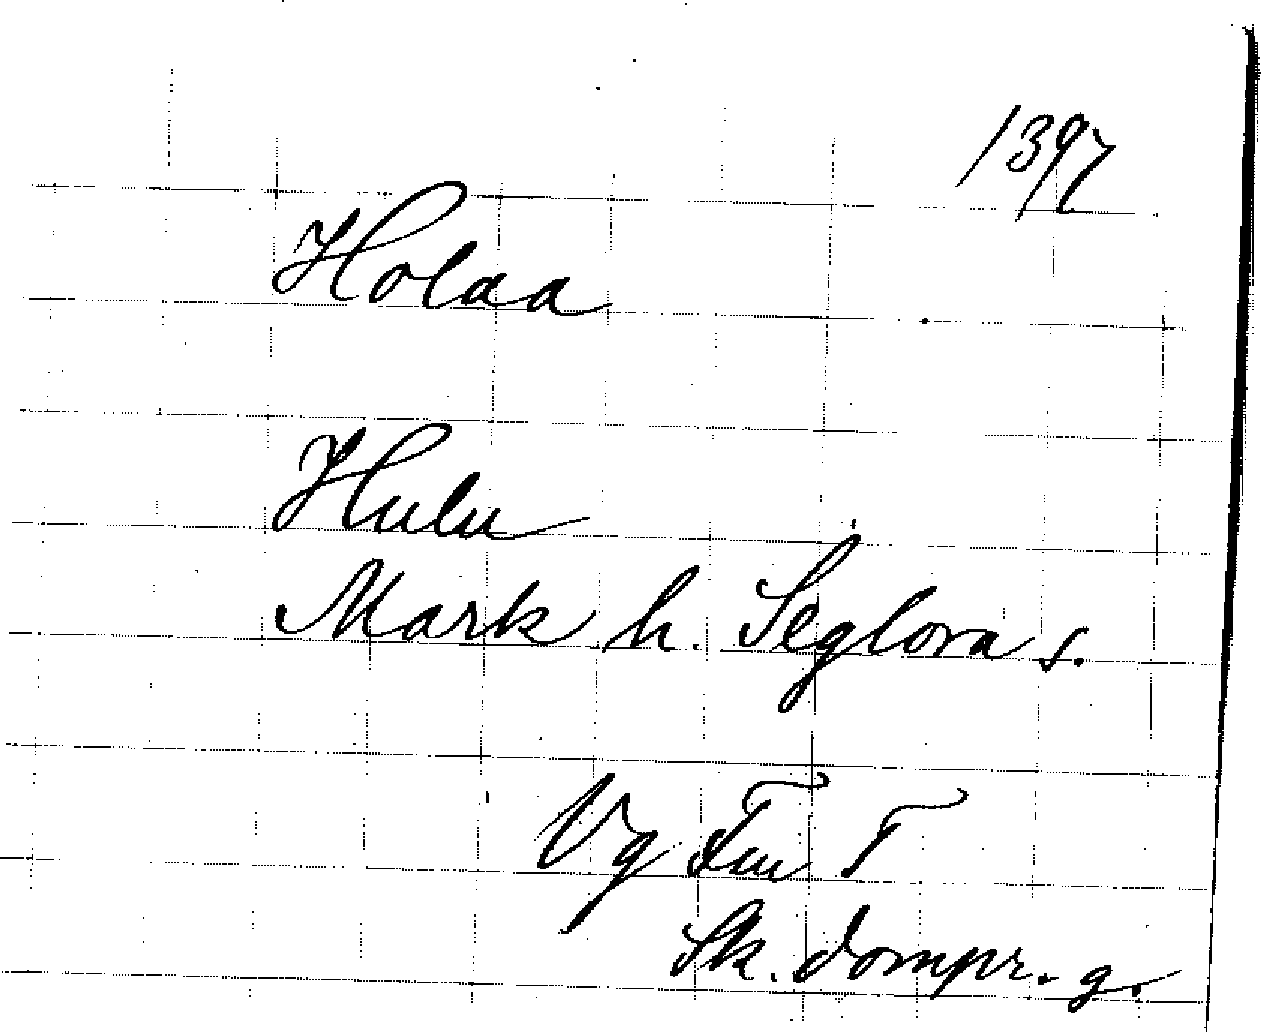 1397
Holaa
Hulu
Mark h. Seglora s.
Vg Fru T
Sk. dompr. g.